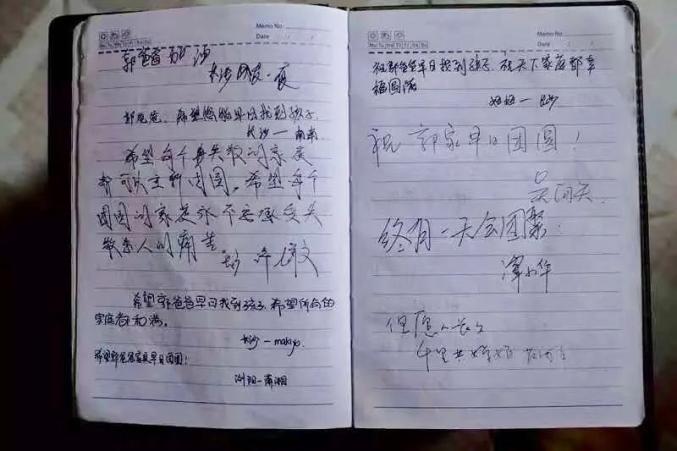 Memo No.
Date
郭爸爸
长沙网友·夏
郭爸爸，希望您能早日找到孩子
长沙—南南
希望每个丢失散的家庭
都可以立即团圆，希望每个
团圆的家庭永不要承受失
散亲人的痛苦
希望郭爸爸早日找到孩子，希望所有的
家庭都和满。
长沙—makiyo
希望郭爸爸家庭早日团圆！
浏阳—萧湘
Memo No.
Date
祝郭爸爸早日找到孩子，祝天下家庭都幸
福圆满
祝郭家早日团圆！
吴问天
终有一天会团聚
谭小华
但愿人长久
千里共婵娟